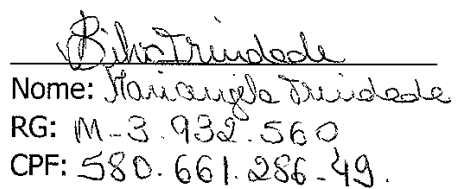 Trindade
Nome: Mariangela Trindade
RG: M-3.932.560
CPF: 580.661.286-49.